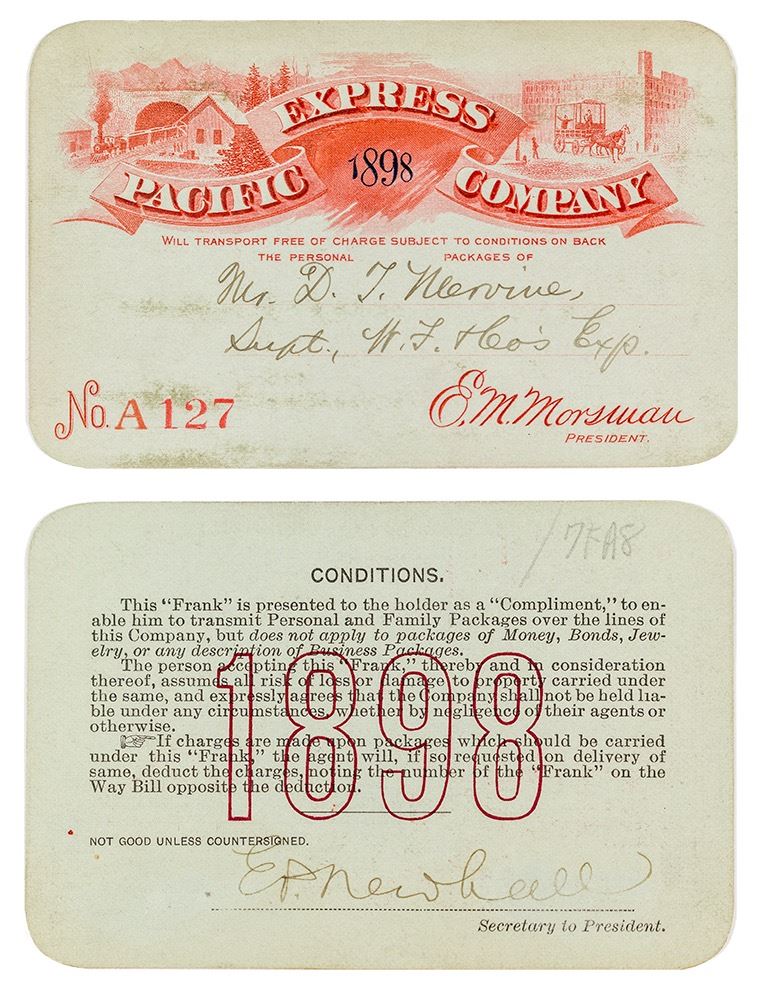 EXPRESS
1898
PACIFIC COMPANY
WILL TRANSPORT FREE OF CHARGE SUBJECT TO CONDITIONS ON BACK
THE PERSONAL PACKAGES OF
Mr. D. T. Mervine,
Supt., W. F. & Co's Exp.
No. A 127
E. M. Morsman
PRESIDENT.
7FA8
CONDITIONS.
This “Frank” is presented to the holder as a “Compliment,” to en-
able him to transmit Personal and Family Packages over the lines of
this Company, but does not apply to packages of Money, Bonds, Jew-
elry, or any description of Business Packages.
The person accepting this “Frank,” thereby and in consideration
thereof, assumes all risk of loss or damage to property carried under
the same, and expressly agrees that the Company shall not be held lia-
ble under any circumstances, whether by negligence of their agents or
otherwise.
☞If charges are made upon packages which should be carried
under this “Frank,” the agent will, if so requested on delivery of
same, deduct the charges, noting the number of the “Frank” on the
Way Bill opposite the deduction.
1898
NOT GOOD UNLESS COUNTERSIGNED.
Newhall
Secretary to President.